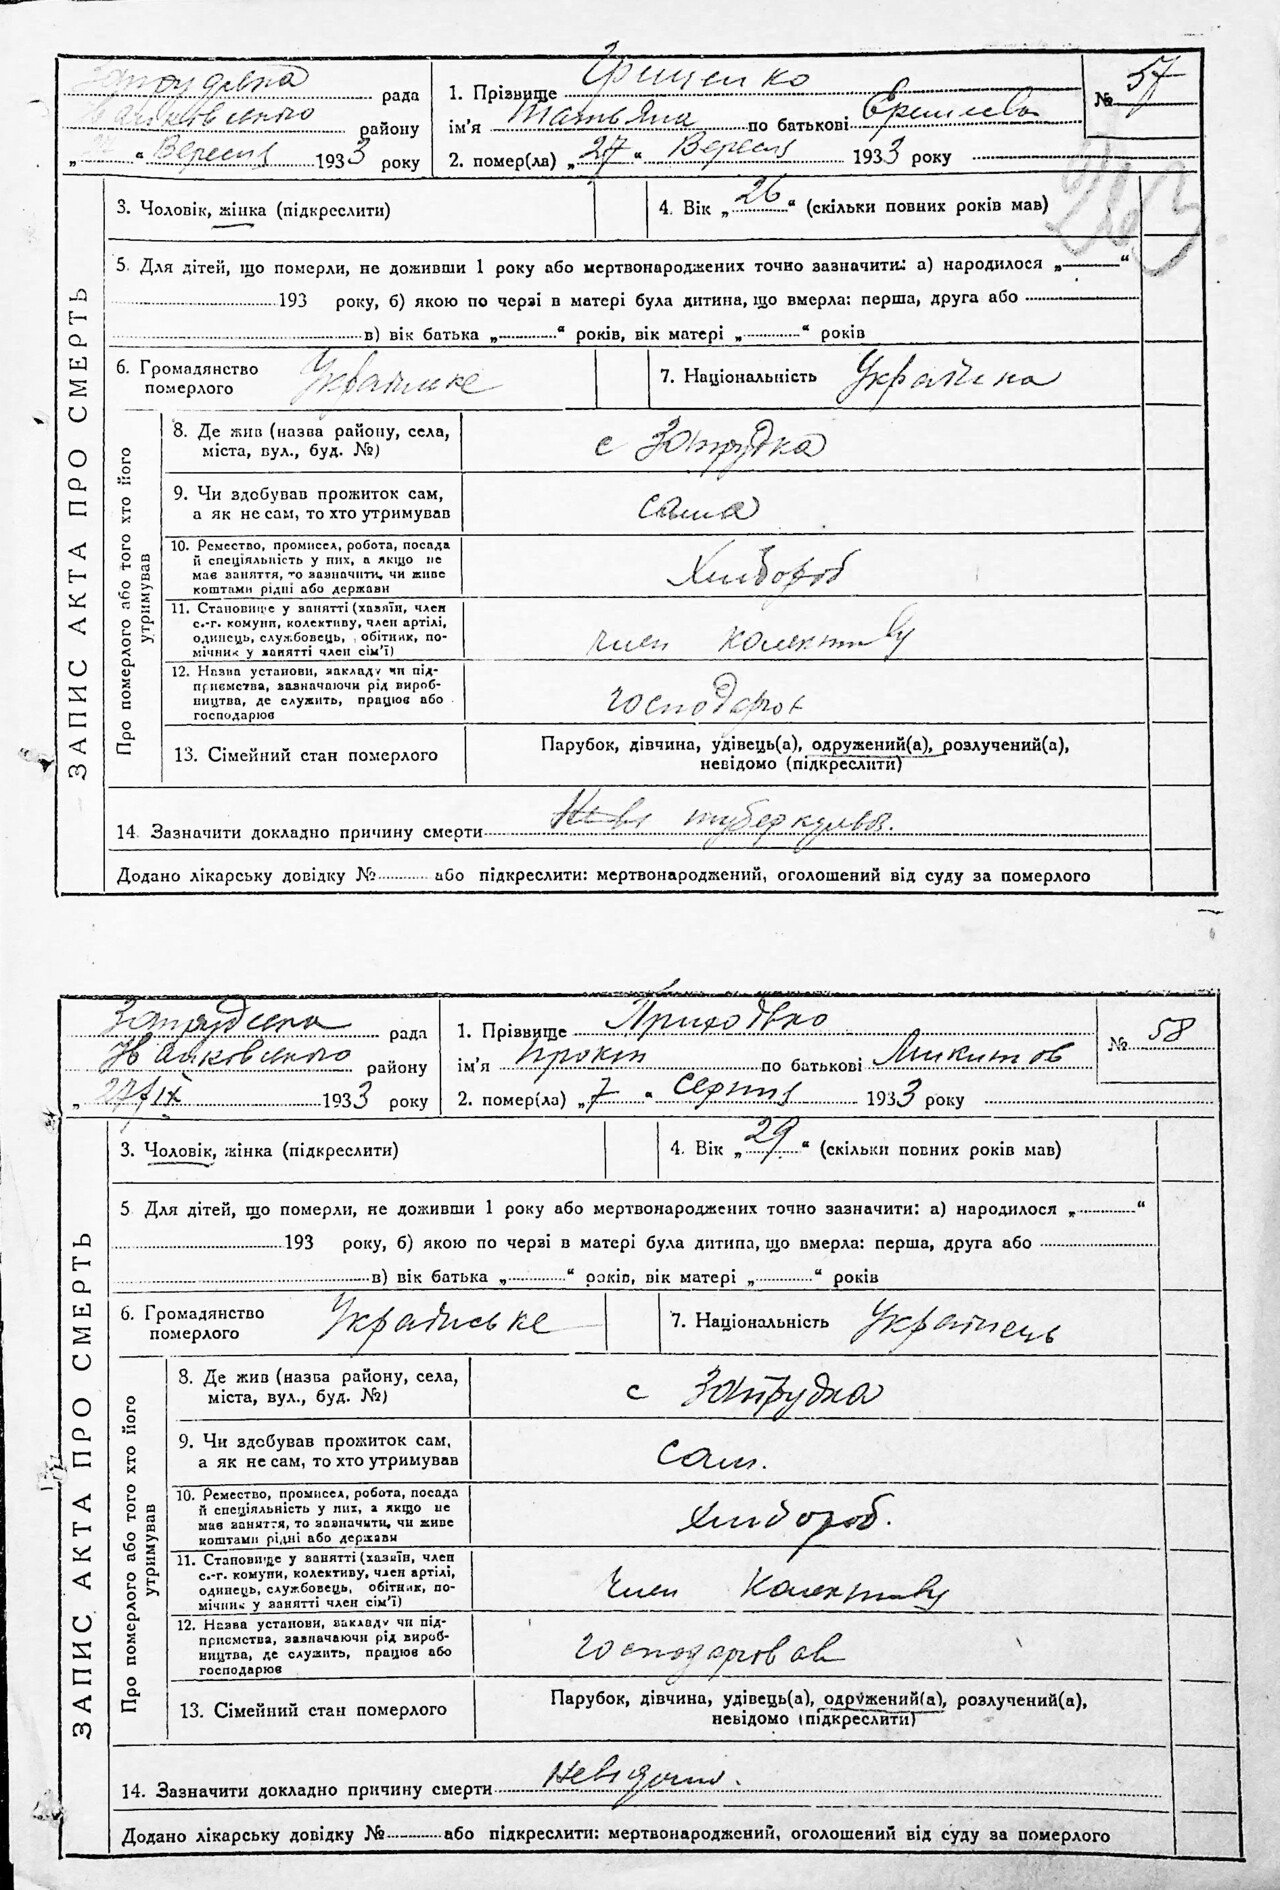 Грищенко
рада
1. Прізвище
№ 57
району
ім'я Татьяна по батькові
„27“ Вересня 1933 року
2. помер(ла) „27“ Вересня 1933 року
3. Чоловік, жінка (підкреслити)
4. Вік „26“ (скільки повних років мав)
5. Для дітей, що померли, не доживши 1 року або мертвонароджених точно зазначити: а) народилося „ “
193 року, б) якою по черзі в матері була дитина, що вмерла: перша, друга або
в) вік батька „ “ років, вік матері „ “ років
6. Громадянство померлого
7. Національність
ЗАПИС АКТА ПРО СМЕРТЬ
Про померлого або того хто його утримував
8. Де жив (назва району, села,
міста, вул., буд. №)
с Запрудка
9. Чи здобував прожиток сам,
а як не сам, то хто утримував
сама
10. Ремество, промисел, робота, посада
й спеціяльність у них, а якщо не
має заняття, то зазначити, чи живе
коштами рідні або держави
Хлібороб
11. Становище у занятті (хазяїн, член
с.-г. комуни, колективу, член артілі,
одинець, службовець, обітник, по-
мічник у занятті член сім'ї)
член колективу
12. Назва установи, закладу чи під-
приємства, зазначаючи рід вироб-
ництва, де служить, працює або
господарює
13. Сімейний стан померлого
Парубок, дівчина, удівець(а), одружений(а), розлучений(а),
невідомо (підкреслити)
14. Зазначити докладно причину смерти туберкульоз.
Додано лікарську довідку № або підкреслити: мертвонароджений, оголошений від суду за померлого
рада
1. Прізвище Приходько
№ 58
району
ім'я Прокіп по батькові Микитов
„27/IX 1933 року
2. помер(ла) „7“ серпня 1933 року
3. Чоловік, жінка (підкреслити)
4. Вік „29“ (скільки повних років мав)
5. Для дітей, що померли, не доживши 1 року або мертвонароджених точно зазначити: а) народилося „ “
193 року, б) якою по черзі в матері була дитина, що вмерла: перша, друга або
в) вік батька „ “ років, вік матері „ “ років
6. Громадянство померлого Українське
7. Національність Українець
ЗАПИС АКТА ПРО СМЕРТЬ
Про померлого або того хто його утримував
8. Де жив (назва району, села,
міста, вул., буд. №)
с Запрудка
9. Чи здобував прожиток сам,
а як не сам, то хто утримував
сам.
10. Ремество, промисел, робота, посада
й спеціяльність у них, а якщо не
має заняття, то зазначити, чи живе
коштами рідні або держави
Хлібороб.
11. Становище у занятті (хазяїн, член
с.-г. комуни, колективу, член артілі,
одинець, службовець, обітник, по-
мічник у занятті член сім'ї)
член колективу
12. Назва установи, закладу чи під-
приємства, зазначаючи рід вироб-
ництва, де служить, працює або
господарює
господарював
13. Сімейний стан померлого
Парубок, дівчина, удівець(а), одружений(а), розлучений(а),
невідомо (підкреслити)
14. Зазначити докладно причину смерти невідомо.
Додано лікарську довідку № або підкреслити: мертвонароджений, оголошений від суду за померлого